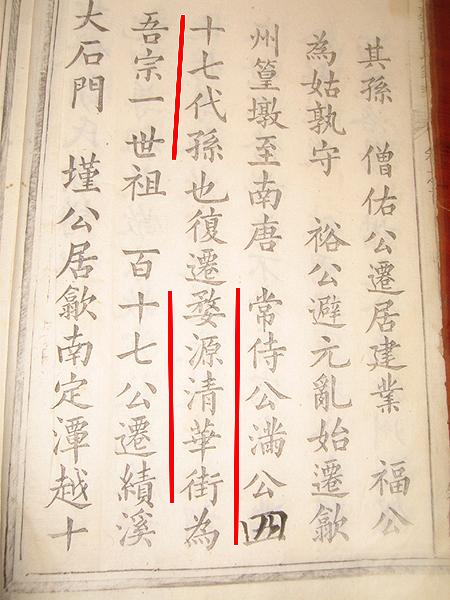 其孫 僧佑公遷居建業 福公
為姑孰守 裕公避元亂始遷歙
州篁墩至南唐 常侍公満公四
十七代孫也復遷婺源清華街為
吾宗一世祖 百十七公遷績溪
大石門 墐公居歙南定潭越十